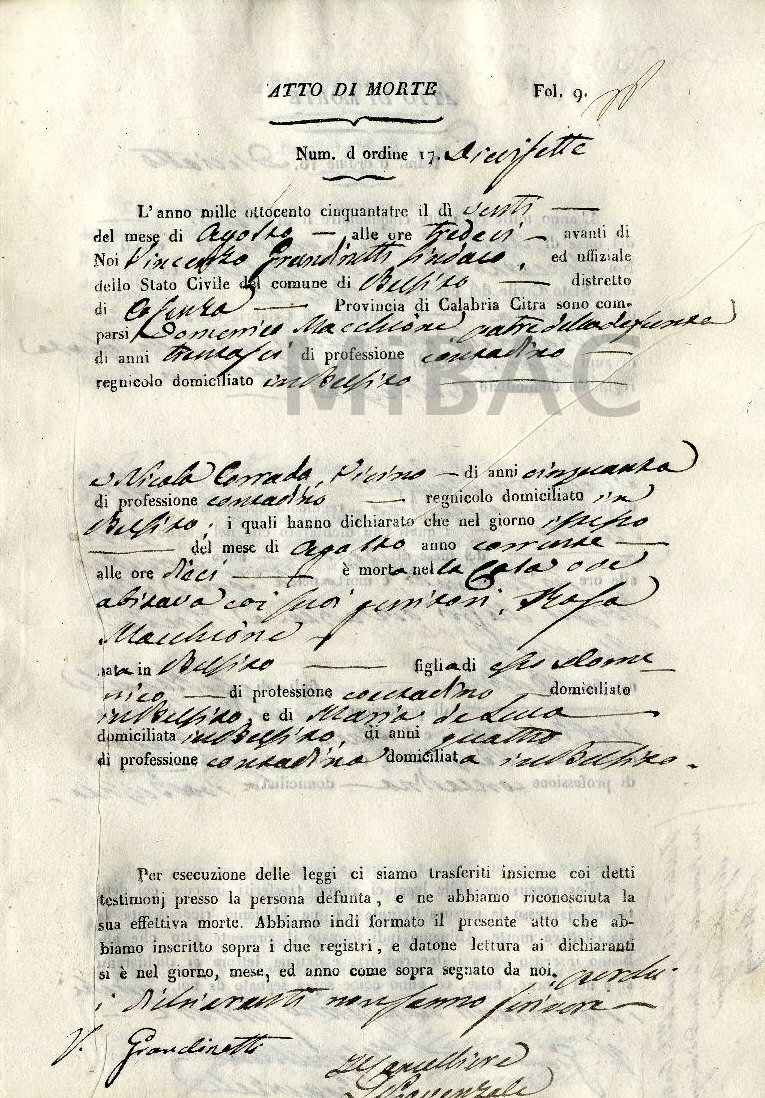 ATTO DI MORTE Fol. 9.
Num. d ordine 17. Diecisette
L'anno mille ottocento cinquantatre il dì venti
del mese di Agosto alle ore tredeci avanti di
Noi Vincenzo Grandinetti Sindaco, ed uffiziale
dello Stato Civile del comune di Belsito distretto
di Cosenza Provincia di Calabria Citra sono com-
parsi Domenico Macchione, patre della defunta
di anni trentasei di professione contadino
regnicolo domiciliato in Belsito
MiBAC
e Nicola Corrado, vicino di anni cinquanta
di professione contadino regnicolo domiciliato in
Belsito, i quali hanno dichiarato che nel giorno istesso
del mese di Agosto anno corrente
alle ore dieci è morta nella casa ove
abitava coi suoi genitori, Rosa
Macchione
nata in Belsito figlia di esso Dome
nico di professione contadino domiciliato
in Belsito e di Maria de Luca
domiciliata in Belsito, di anni quattro
di professione contadina domiciliata in Belsito.
Per esecuzione delle leggi ci siamo trasferiti insieme coi detti
testimonj presso la persona defunta, e ne abbiamo riconosciuta la
sua effettiva morte. Abbiamo indi formato il presente atto che ab-
biamo inscritto sopra i due registri, e datone lettura ai dichiaranti
si è nel giorno, mese, ed anno come sopra segnato da noi,
i dichiaranti non sanno scrivere
V. Grandinetti
Il Cancelliere